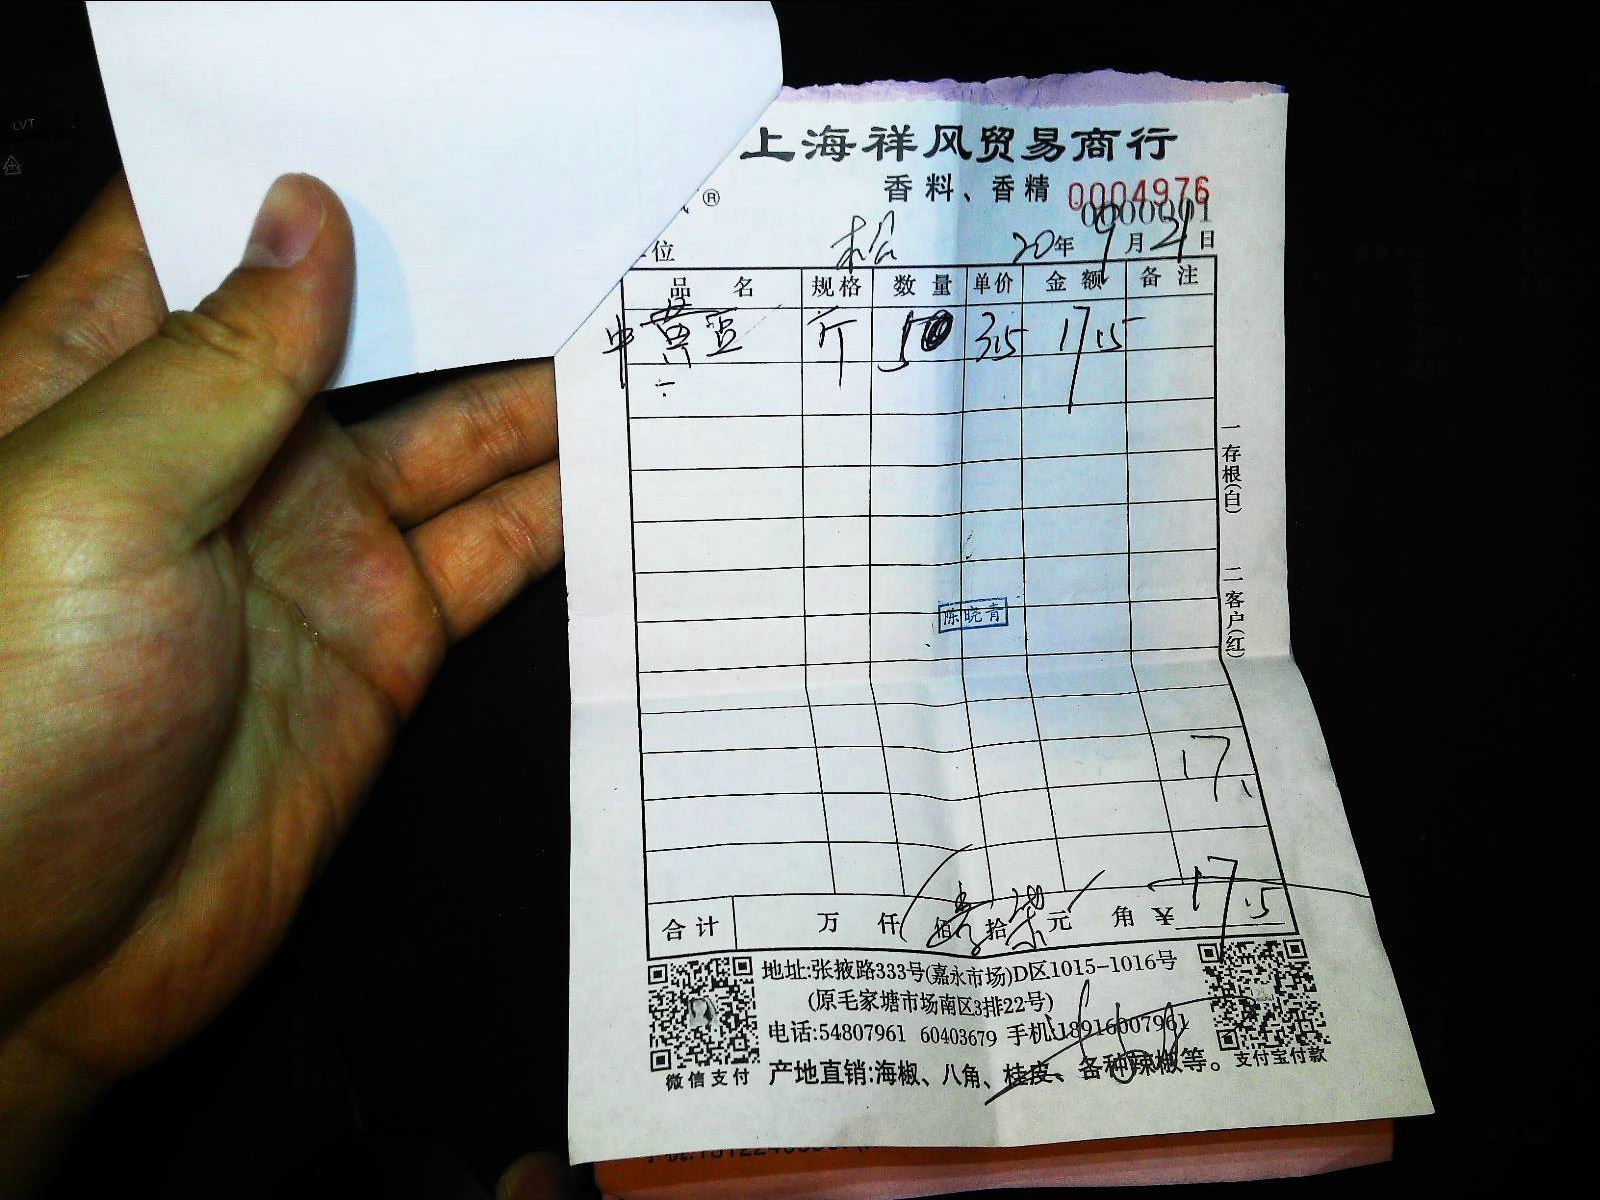 LVT
上海祥风贸易商行
®
香料、香精 0004976
0000001
位 松 20年 9月 21日
品 名 规格 数量 单价 金额 备注
中黄豆 斤 5 3.5 17.5
一存根(白) 二客户(红)
陈晓青
17
合计 万 仟 佰 壹拾 柒元 角 ¥ 17.5
地址:张掖路333号(嘉永市场)D区1015-1016号
(原毛家塘市场南区3排22号)
电话:54807961 60403679 手机:18916007961
微信支付 产地直销:海椒、八角、桂皮、各种辣椒等。 支付宝付款